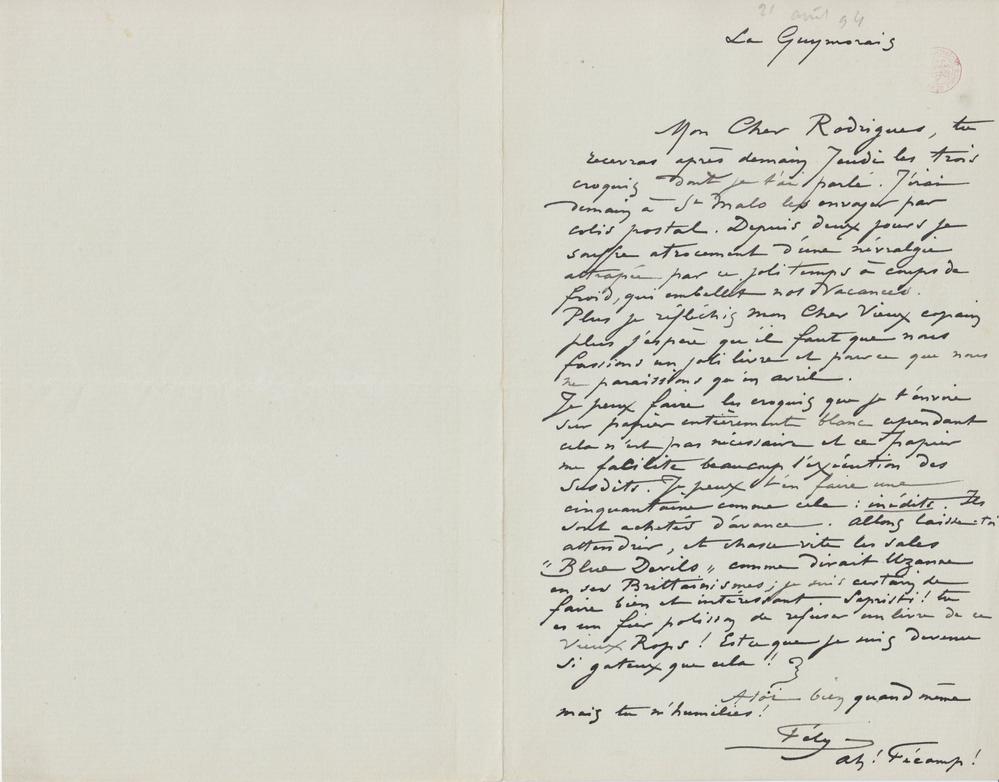 21 avril 94
La Guymorais
Mon Cher Rodrigues, tu
recevras après demain Jeudi les trois
croquis dont je t'ai parlé. J'irai
demain à St Malo les envoyer par
colis postal. Depuis deux jours je
souffre atrocement d'une névralgie
attrapée par ce joli temps à coups de
froid, qui embellit nos Vacances.
Plus je réfléchis mon Cher Vieux copain
plus j'espère qu'il faut que nous
fassions un joli livre et pour ce que nous
ne paraissions qu'en avril.
Je peux faire les croquis que je t'envoie
sur papier entièrement blanc cependant
cela n'est pas nécessaire et ce papier
me facilite beaucoup l'exécution des
susdits. Je peux t'en faire une
cinquantaine comme cela : inédits. Ils
sont achetés d'avance. Allons laisse-toi
attendrir, et chasse vite les sales
"Blue Devils" comme dirait Uzanne
en ses Brittanismes; je suis certain de
faire bien et intéressant. Sapristi! tu
es un fier polisson de refuser un livre de ce
vieux Rops! Est ce que je suis devenu
si gateux que cela!
A toi bien quand même
mais tu m'humilies!
Fély
ah! Fécamp!